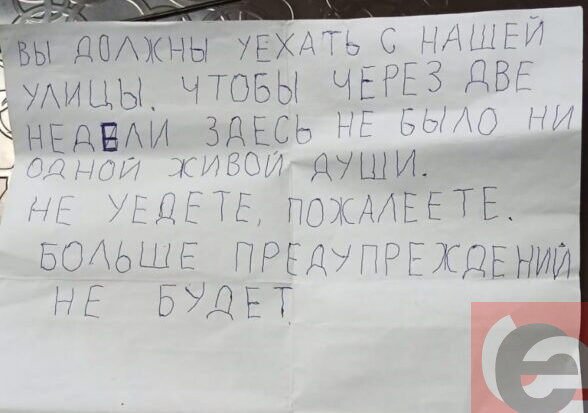 ВЫ ДОЛЖНЫ УЕХАТЬ С НАШЕЙ
УЛИЦЫ. ЧТОБЫ ЧЕРЕЗ ДВЕ
НЕДЕЛИ ЗДЕСЬ НЕ БЫЛО НИ
ОДНОЙ ЖИВОЙ ДУШИ.
НЕ УЕДЕТЕ, ПОЖАЛЕЕТЕ.
БОЛЬШЕ ПРЕДУПРЕЖДЕНИЙ
НЕ БУДЕТ